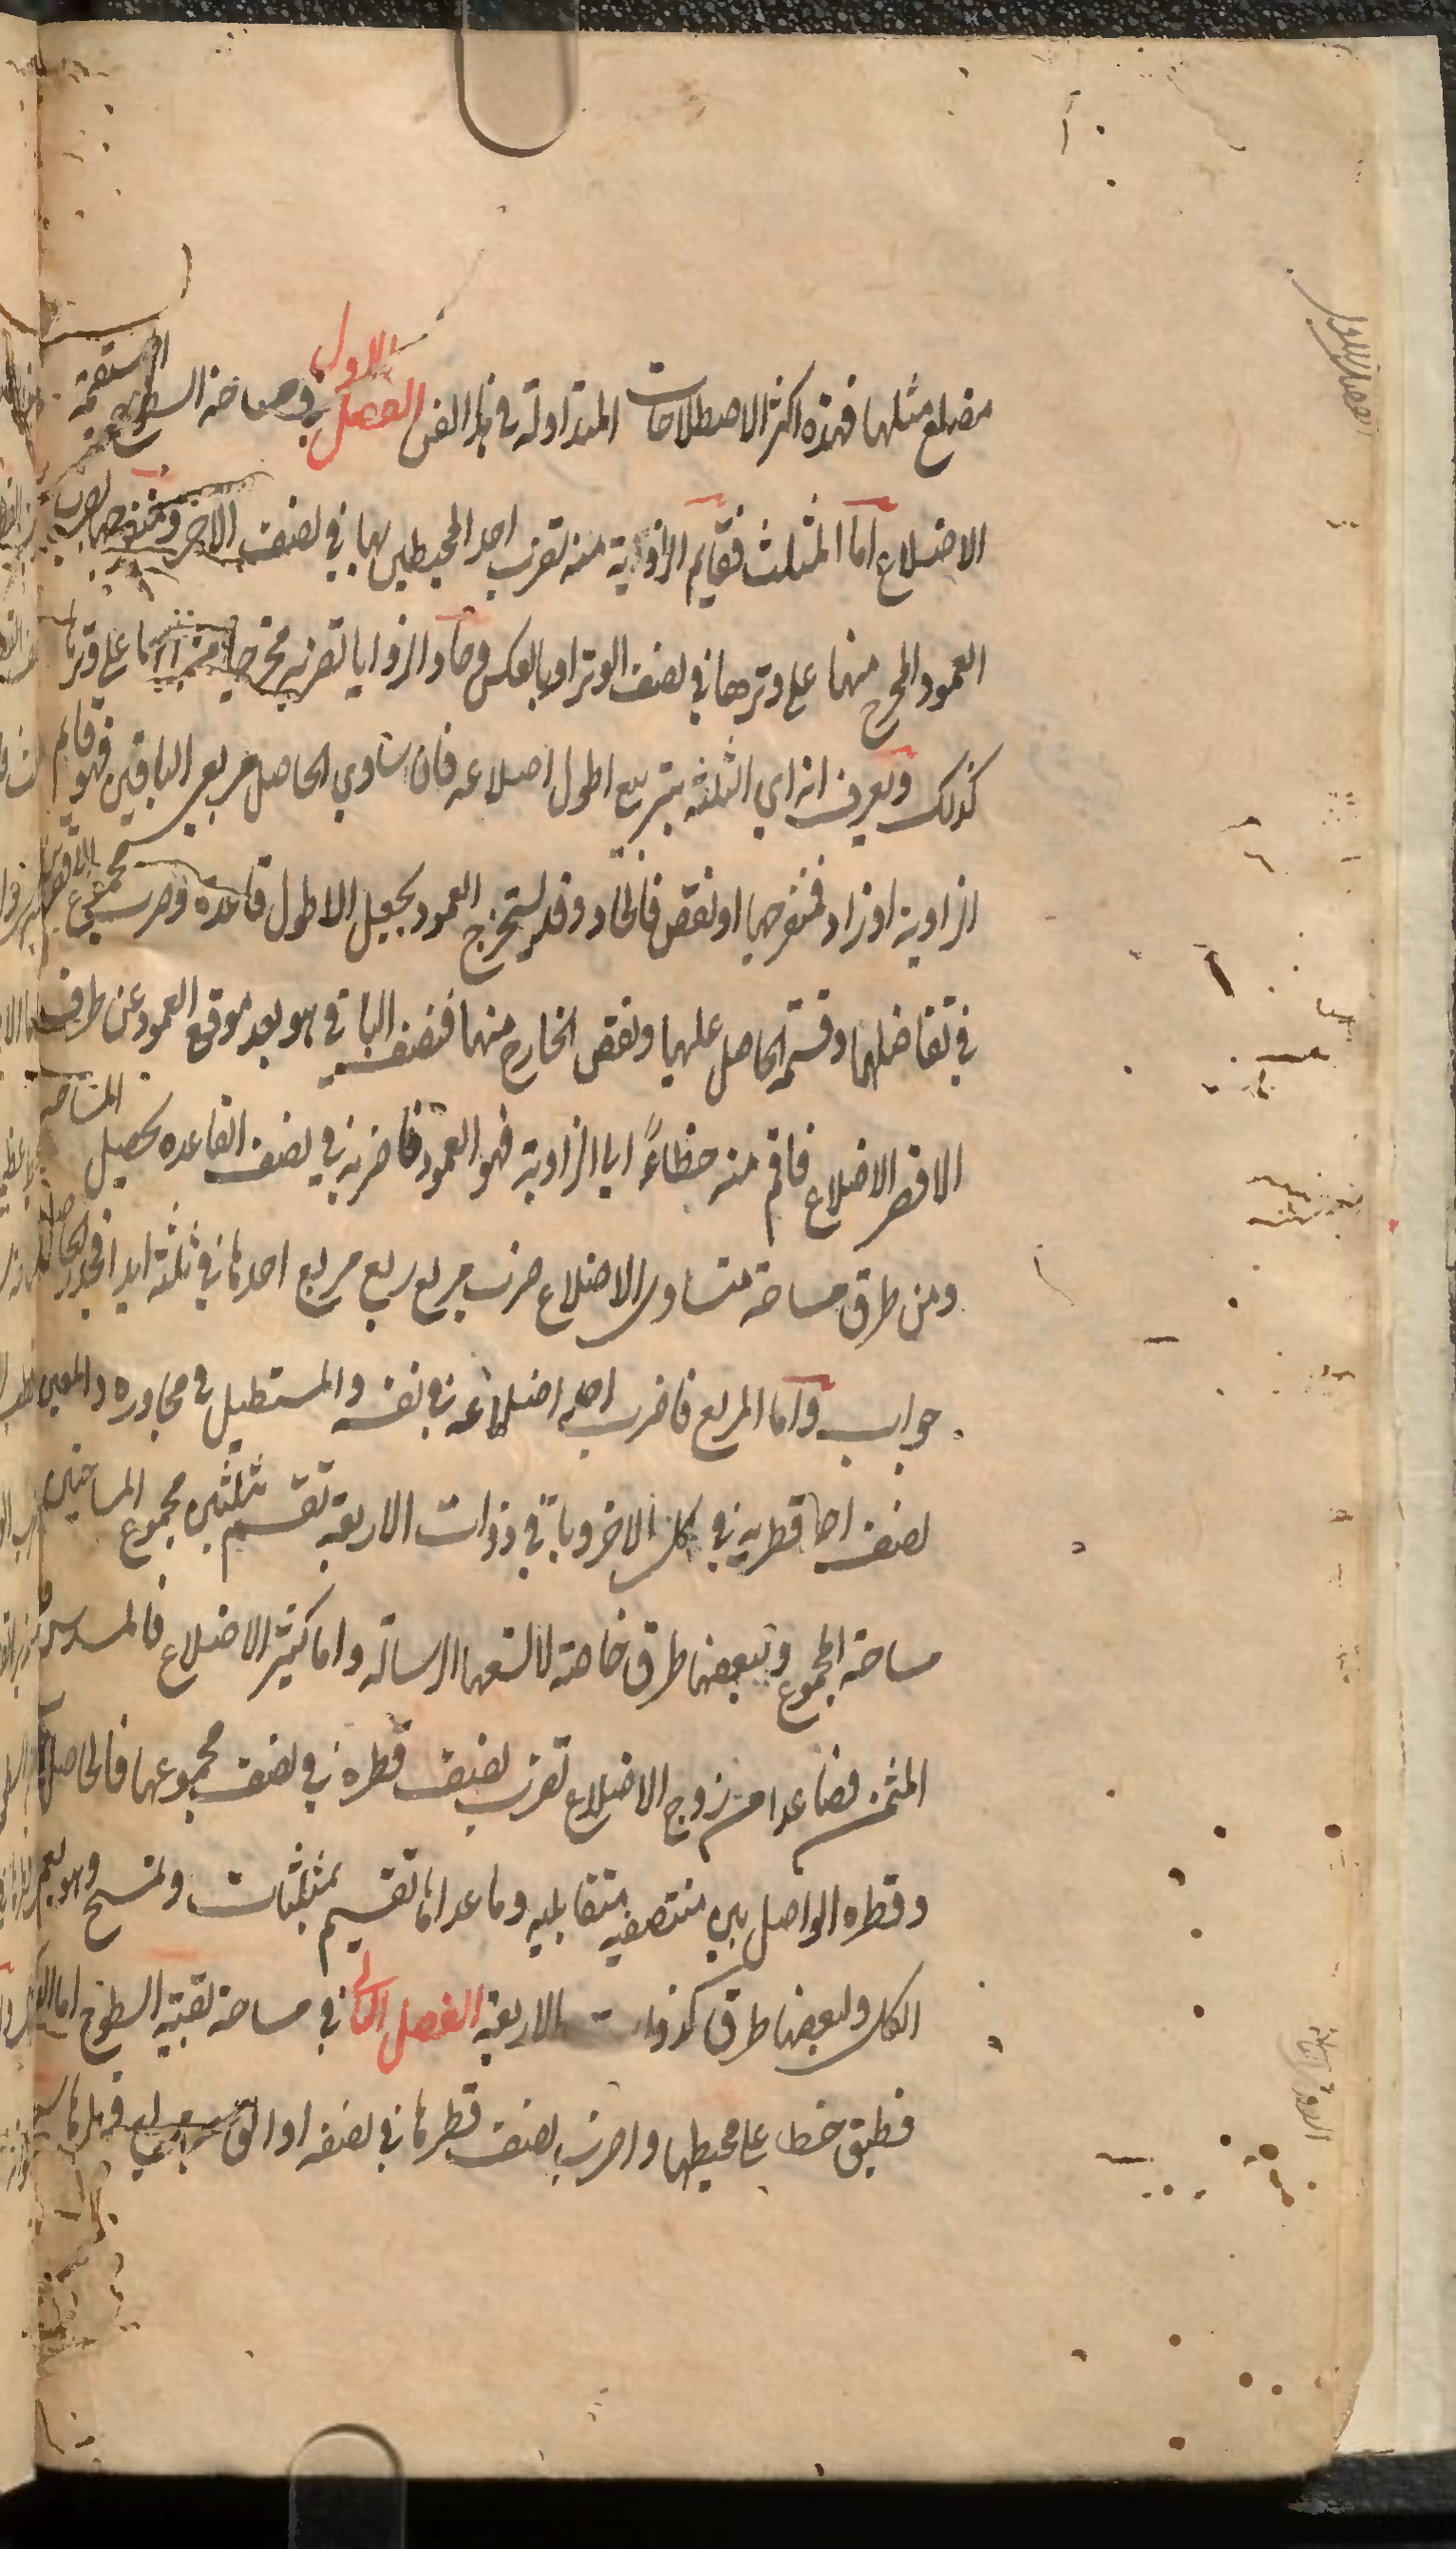 مضلع مثلها فهذه اكثر الاصطلاحات المتداولة في هذا الفن الفصل الاول في مساحة السطوح المستقيمة
الاضلاع اما المثلث فقايم الزاوية منه تضرب احد المحيطين بها في نصف الاخر ومنفرجها تضرب
العمود المخرج منها على وترها في نصف الوتر او بالعكس وحاد الزوايا تضربه مخرجا من ايها على وترها
كذلك ويعرف انه اي الثلثة بتربيع اطول اضلاعه فان ساوي الحاصل مربعي الباقين فهو قايم
الزاوية او زاد فمنفرجها او نقص فالحاد وقد يستخرج العمود بجعل الاطول قاعدة وضرب مجموع الاقصرين
في تفاضلهما وقسمة الحاصل عليها ونقص الخارج منها فنصف الباقي هو بعد موقع العمود عن طرف
الاقصر الاضلاع فاقم منه خطاً الي الزاوية فهو العمود فاضربه في نصف القاعده يحصل المساحة
ومن طرق مساحة متساوى الاضلاع ضرب مربع ربع مربع احدها في ثلثة ابدا فجذر الحاصل
جواب واما المربع فاضرب احد اضلاعه في نفسه والمستطيل في مجاوره والمعين
نصف احد قطريه في كل الاخر وباقي ذوات الاربعة تقسم بمثلثين مجموع المساحتين
مساحة المجموع ولبعضها طرق خاصة لا تسعها الرسالة واما كثير الاضلاع فالمسدس و
المثمن فصاعدا من زوج الاضلاع تضرب نصف قطره في نصف مجموعها فالحاصل
وقطره الواصل بين منتصفي متقابليه وما عداها تقسم بمثلثات وتمسح وهو يعم
الكل ولبعضها طرق كذوات الاربعة الفصل الثاني في مساحة بقية السطوح اما
فطبق خطا على محيطها واضرب نصف قطرها في نصفه او الق